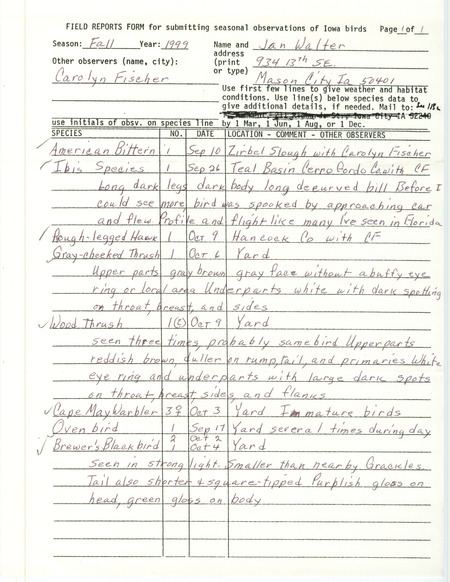 FIELD REPORTS FORM for submitting seasonal observations of Iowa birds Page 1 of 1
Season: Fall Year: 1999 Name and Jan Walter
address
Other observers (name, city): (print 934 13th SE.
Carolyn Fischer or type) Mason City Ia 50401
Use first few lines to give weather and habitat
conditions. Use line(s) below species data to
give additional details, if needed. Mail to:
Iowa City IA 52240
use initials of obsv. on species line by 1 Mar, 1 Jun, 1 Aug, or 1 Dec.
SPECIES NO. DATE LOCATION - COMMENT - OTHER OBSERVERS
American Bittern 1 Sep 10 Zirbel Slough with Carolyn Fischer
Ibis Species 1 Sep 26 Teal Basin Cerro Gordo Co with CF
Long dark legs dark body long decurved bill Before I
could see more bird was spooked by approaching car
and flew Profile and flight like many I've seen in Florida
Rough-legged Hawk 1 Oct 9 Hancock Co with CF
Gray-cheeked Thrush 1 Oct 6 Yard
Upper parts gray brown gray face without a buffy eye
ring or loral area Underparts white with dark spotting
on throat, breast, and sides
Wood Thrush 1(c) Oct 9 Yard
seen three times, probably same bird Upperparts
reddish brown, duller on rump, tail, and primaries White
eye ring and underparts with large dark spots
on throat, breast, sides, and flanks
Cape May Warbler 3♀ Oct 3 Yard Immature birds
Oven bird 1 Sep 17 Yard several times during day
2 Oct 2
Brewer's Blackbird 1 Oct 4 Yard
Seen in strong light. Smaller than nearby Grackles.
Tail also shorter & square-tipped Purplish gloss on
head, green gloss on body